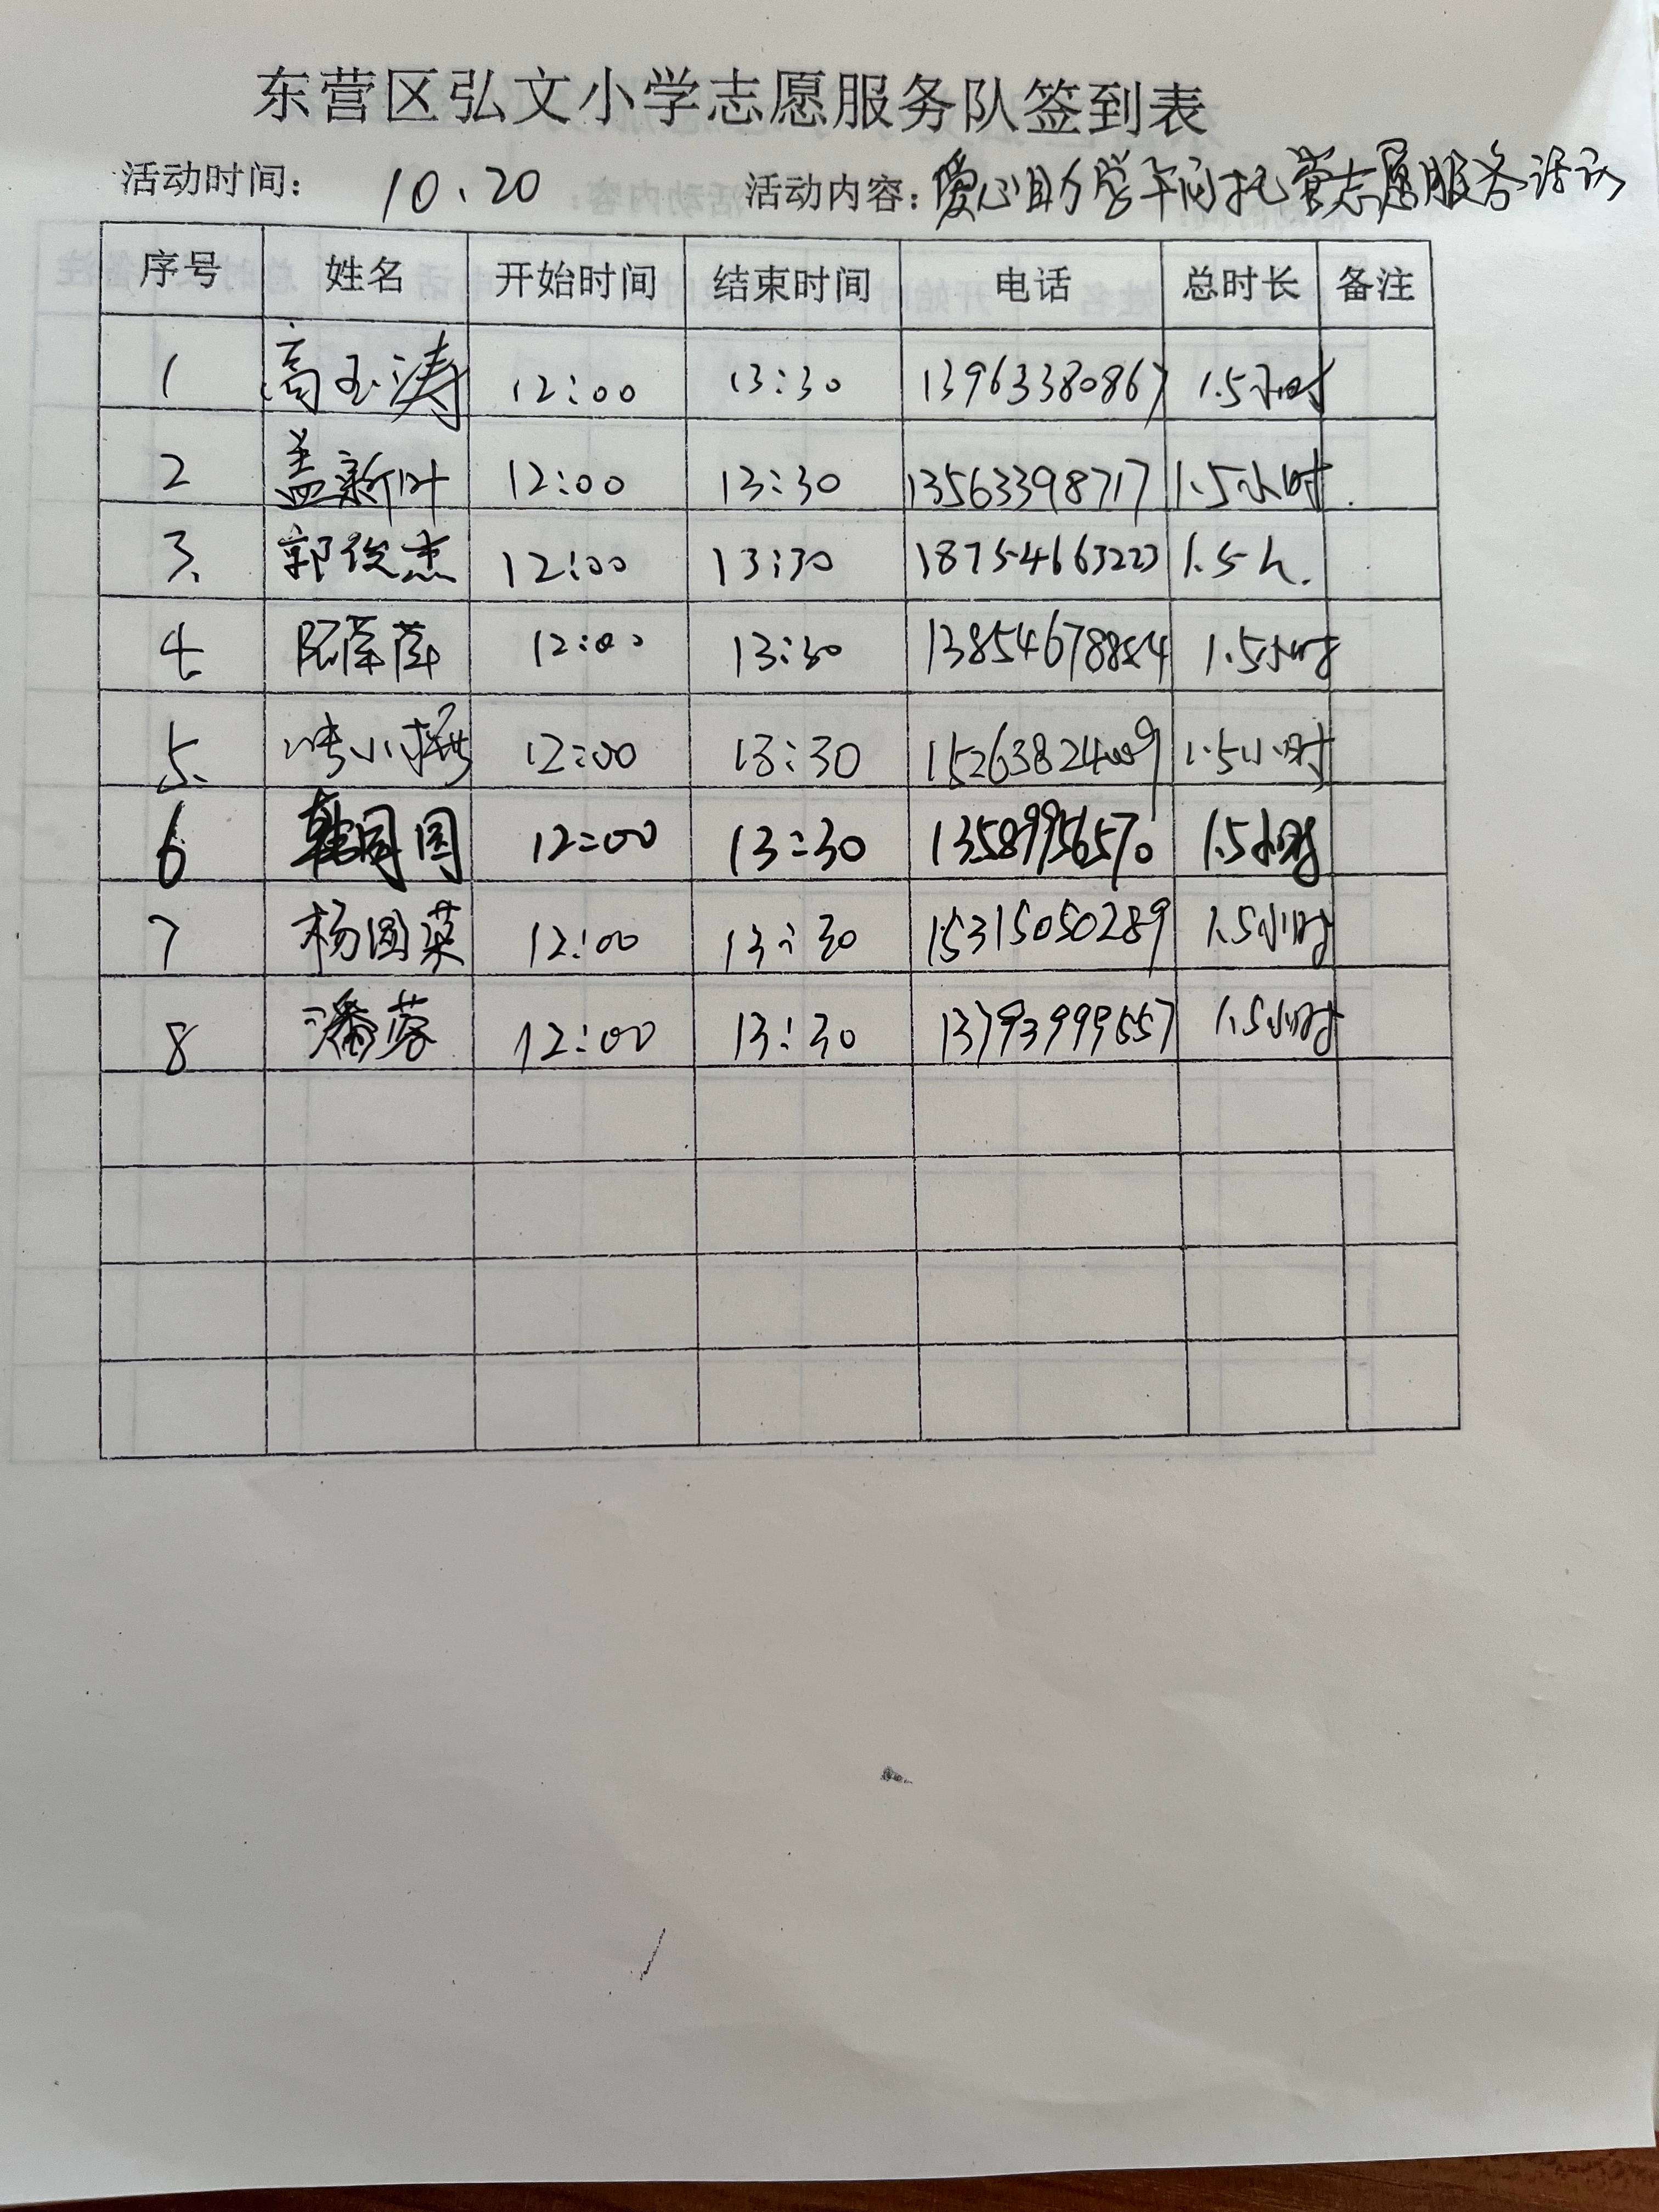 东营区弘文小学志愿服务队签到表
活动时间: 10.20 活动内容: 爱心助学午间托管志愿服务活动
序号 姓名 开始时间 结束时间 电话 总时长 备注
1 高玉涛 12:00 13:30 13963380867 1.5小时
2 盖新叶 12:00 13:30 13563398717 1.5小时.
3. 郭俊杰 12:00 13:30 18754663223 1.5h.
4 萍萍 12:00 13:30 13854678854 1.5小时
5. 小 12:00 13:30 15263824009 1.5小时
6 韩园园 12:00 13:30 13589956570 1.5小时
7 杨圆英 12:00 13:30 15315050289 1.5小时
8 潘蓉 12:00 13:30 13793999557 1.5小时